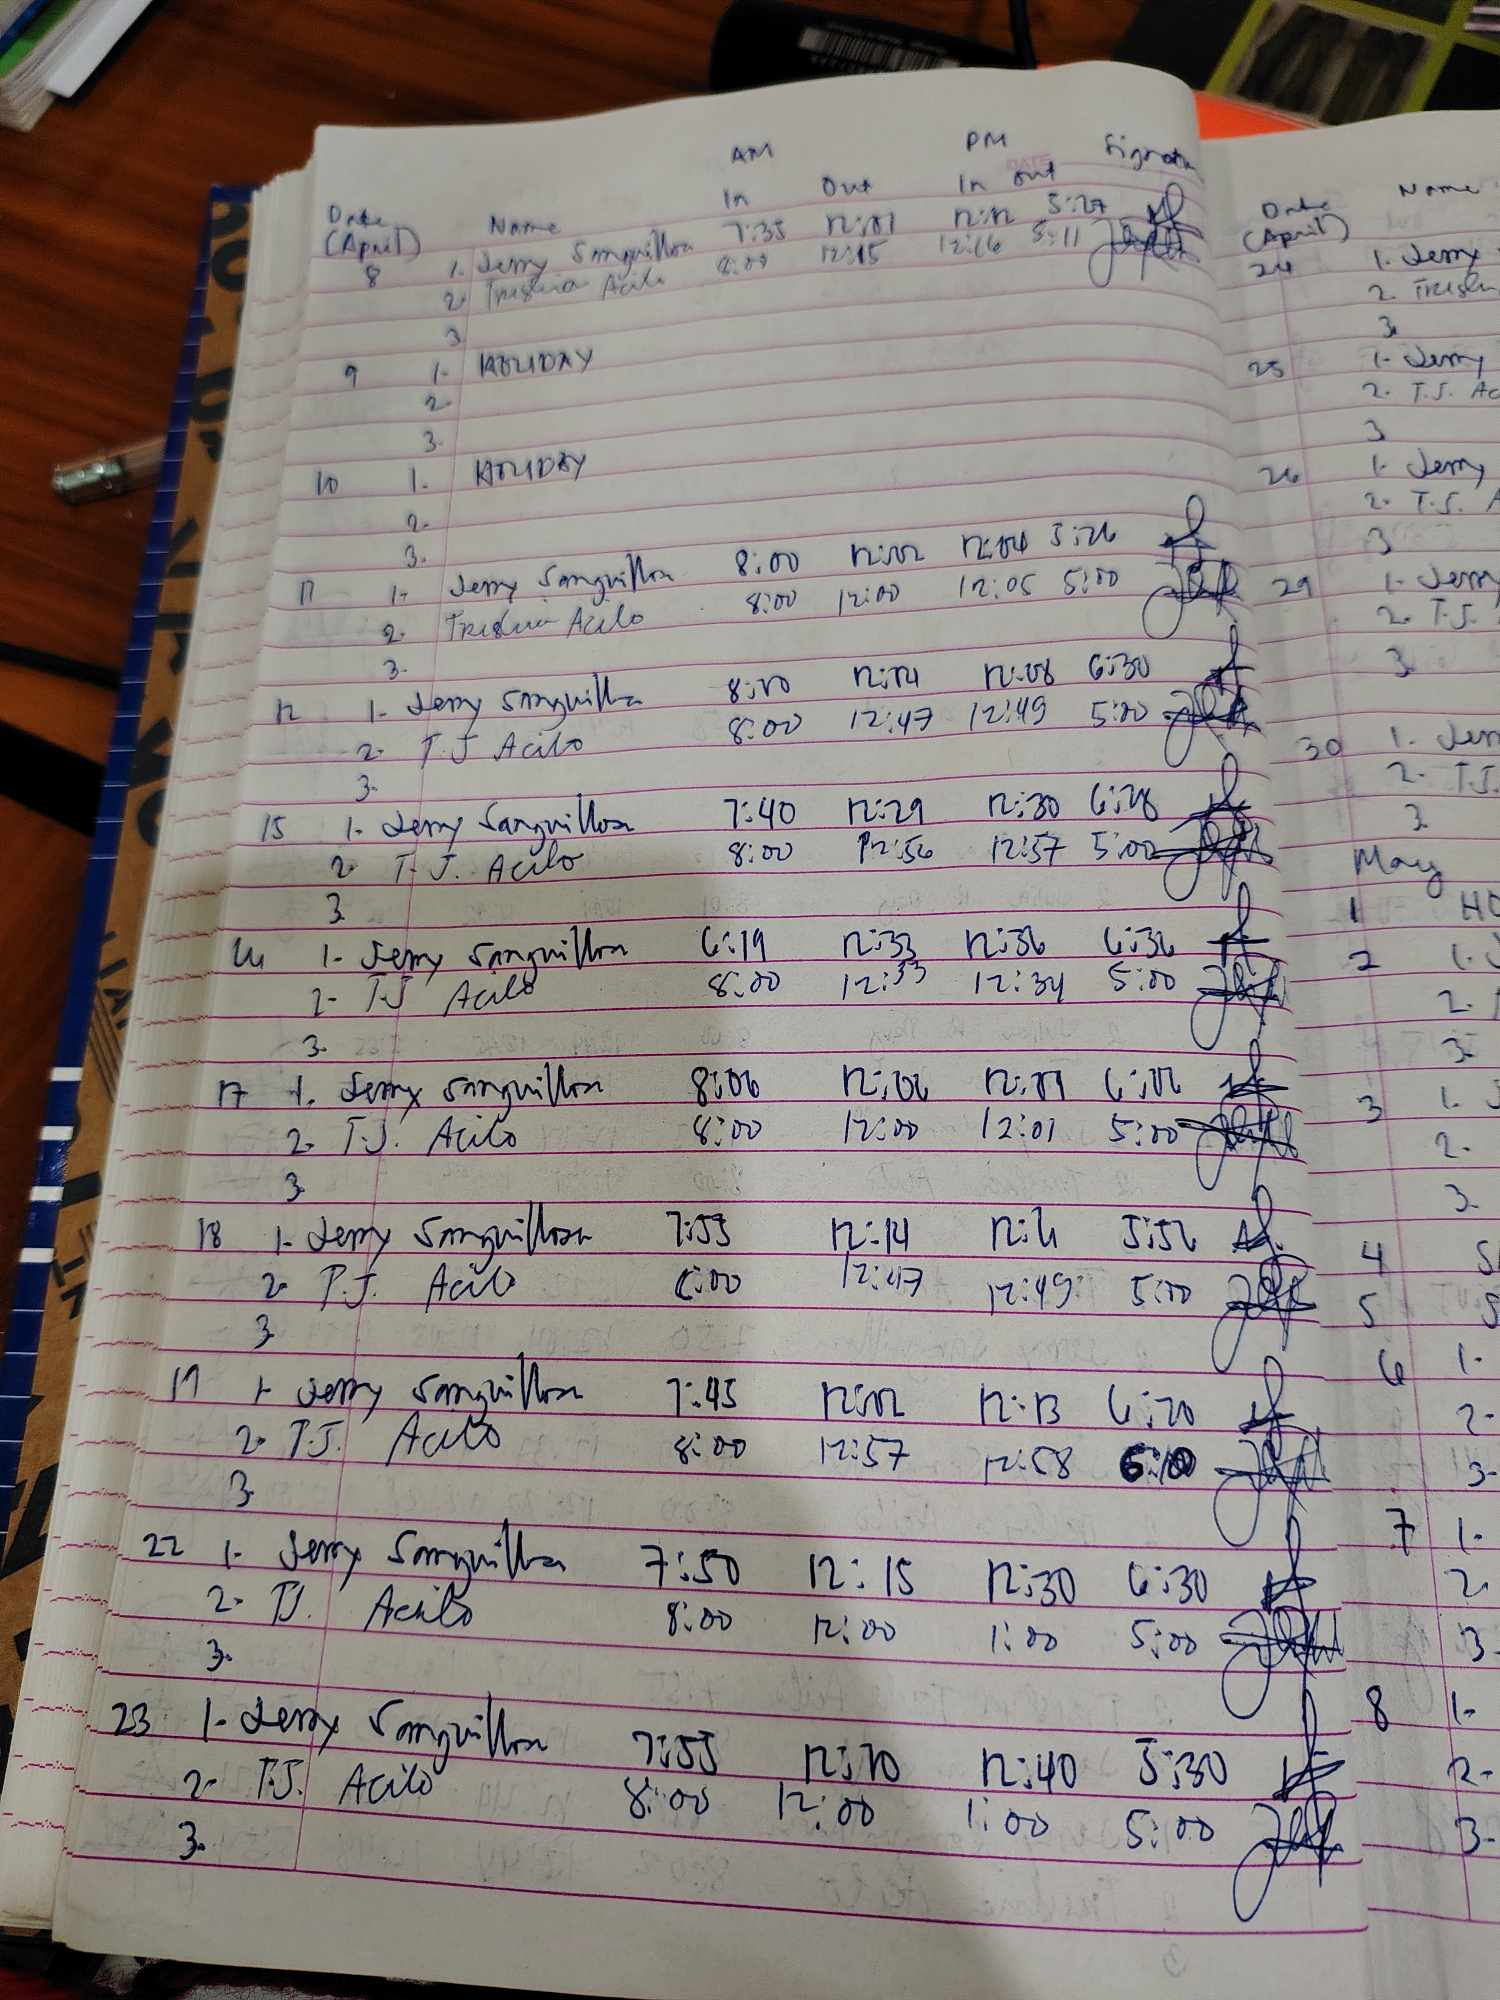 AM PM Signatu
In Out In out
Date Name
(April)
8 1. Jerry Sanguillosa 7:35 12:01 12:12 5:27
2. Acilo 8:09 12:15 12:16 5:11
3
9 1- HOLIDAY
2
3.
10 1. HOLIDAY
2.
3.
11 1- Jerry Sanguillosa 8:00 12:02 12:04 5:26
2. Acilo 8:00 12:00 12:05 5:00
3.
12 1- Jerry Sanguillosa 12:08 6:30
2- T.J Acilo 8:00 12:47 12:49 5:00
3.
15 1- Jerry Sanguillosa 7:40 12:29 12:30 6:28
2- T.J. Acilo 8:00 12:56 12:57 5:00
3.
16 1- Jerry Sanguillosa 6:19 12:33 12:36 6:36
2- T.J Acilo 8:00 12:33 12:34 5:00
3.
17 1. Jerry Sanguillosa 8:06 12:06
2- T.J. Acilo 8:00 12:00 12:01 5:00
3
18 1- Jerry Sanguillosa 7:53 12:14 5:56
2- T.J. Acilo 12:47 12:49 5:00
3
19 1- Jerry Sanguillosa 7:45 12:02 12:13 6:20
2- T.J. Acilo 8:00 12:57 12:58
3
22 1- Jerry Sanguillosa 7:50 12:15 12:30 6:30
2- TJ. Acilo 8:00 12:00 1:00 5:00
3.
23 1- Jerry Sanguillosa 7:55 12:40 5:30
2- T.J. Acilo 8:00 12:00 1:00 5:00
3.
Date Name
(April)
24 1. Jerry
2.
3
25 1- Jerry
2. T.J. Ac
3
26 1- Jerry
2- T.J. A
3
29 1- Jerry
2- T.J.
3
30 1. Jerr
2- T.J.
3
May
1 HO
2 1-
2-
3-
3 1-
2-
3-
4 S
5 S
6 1-
2-
3-
7 1-
2-
3-
8 1-
2-
3-